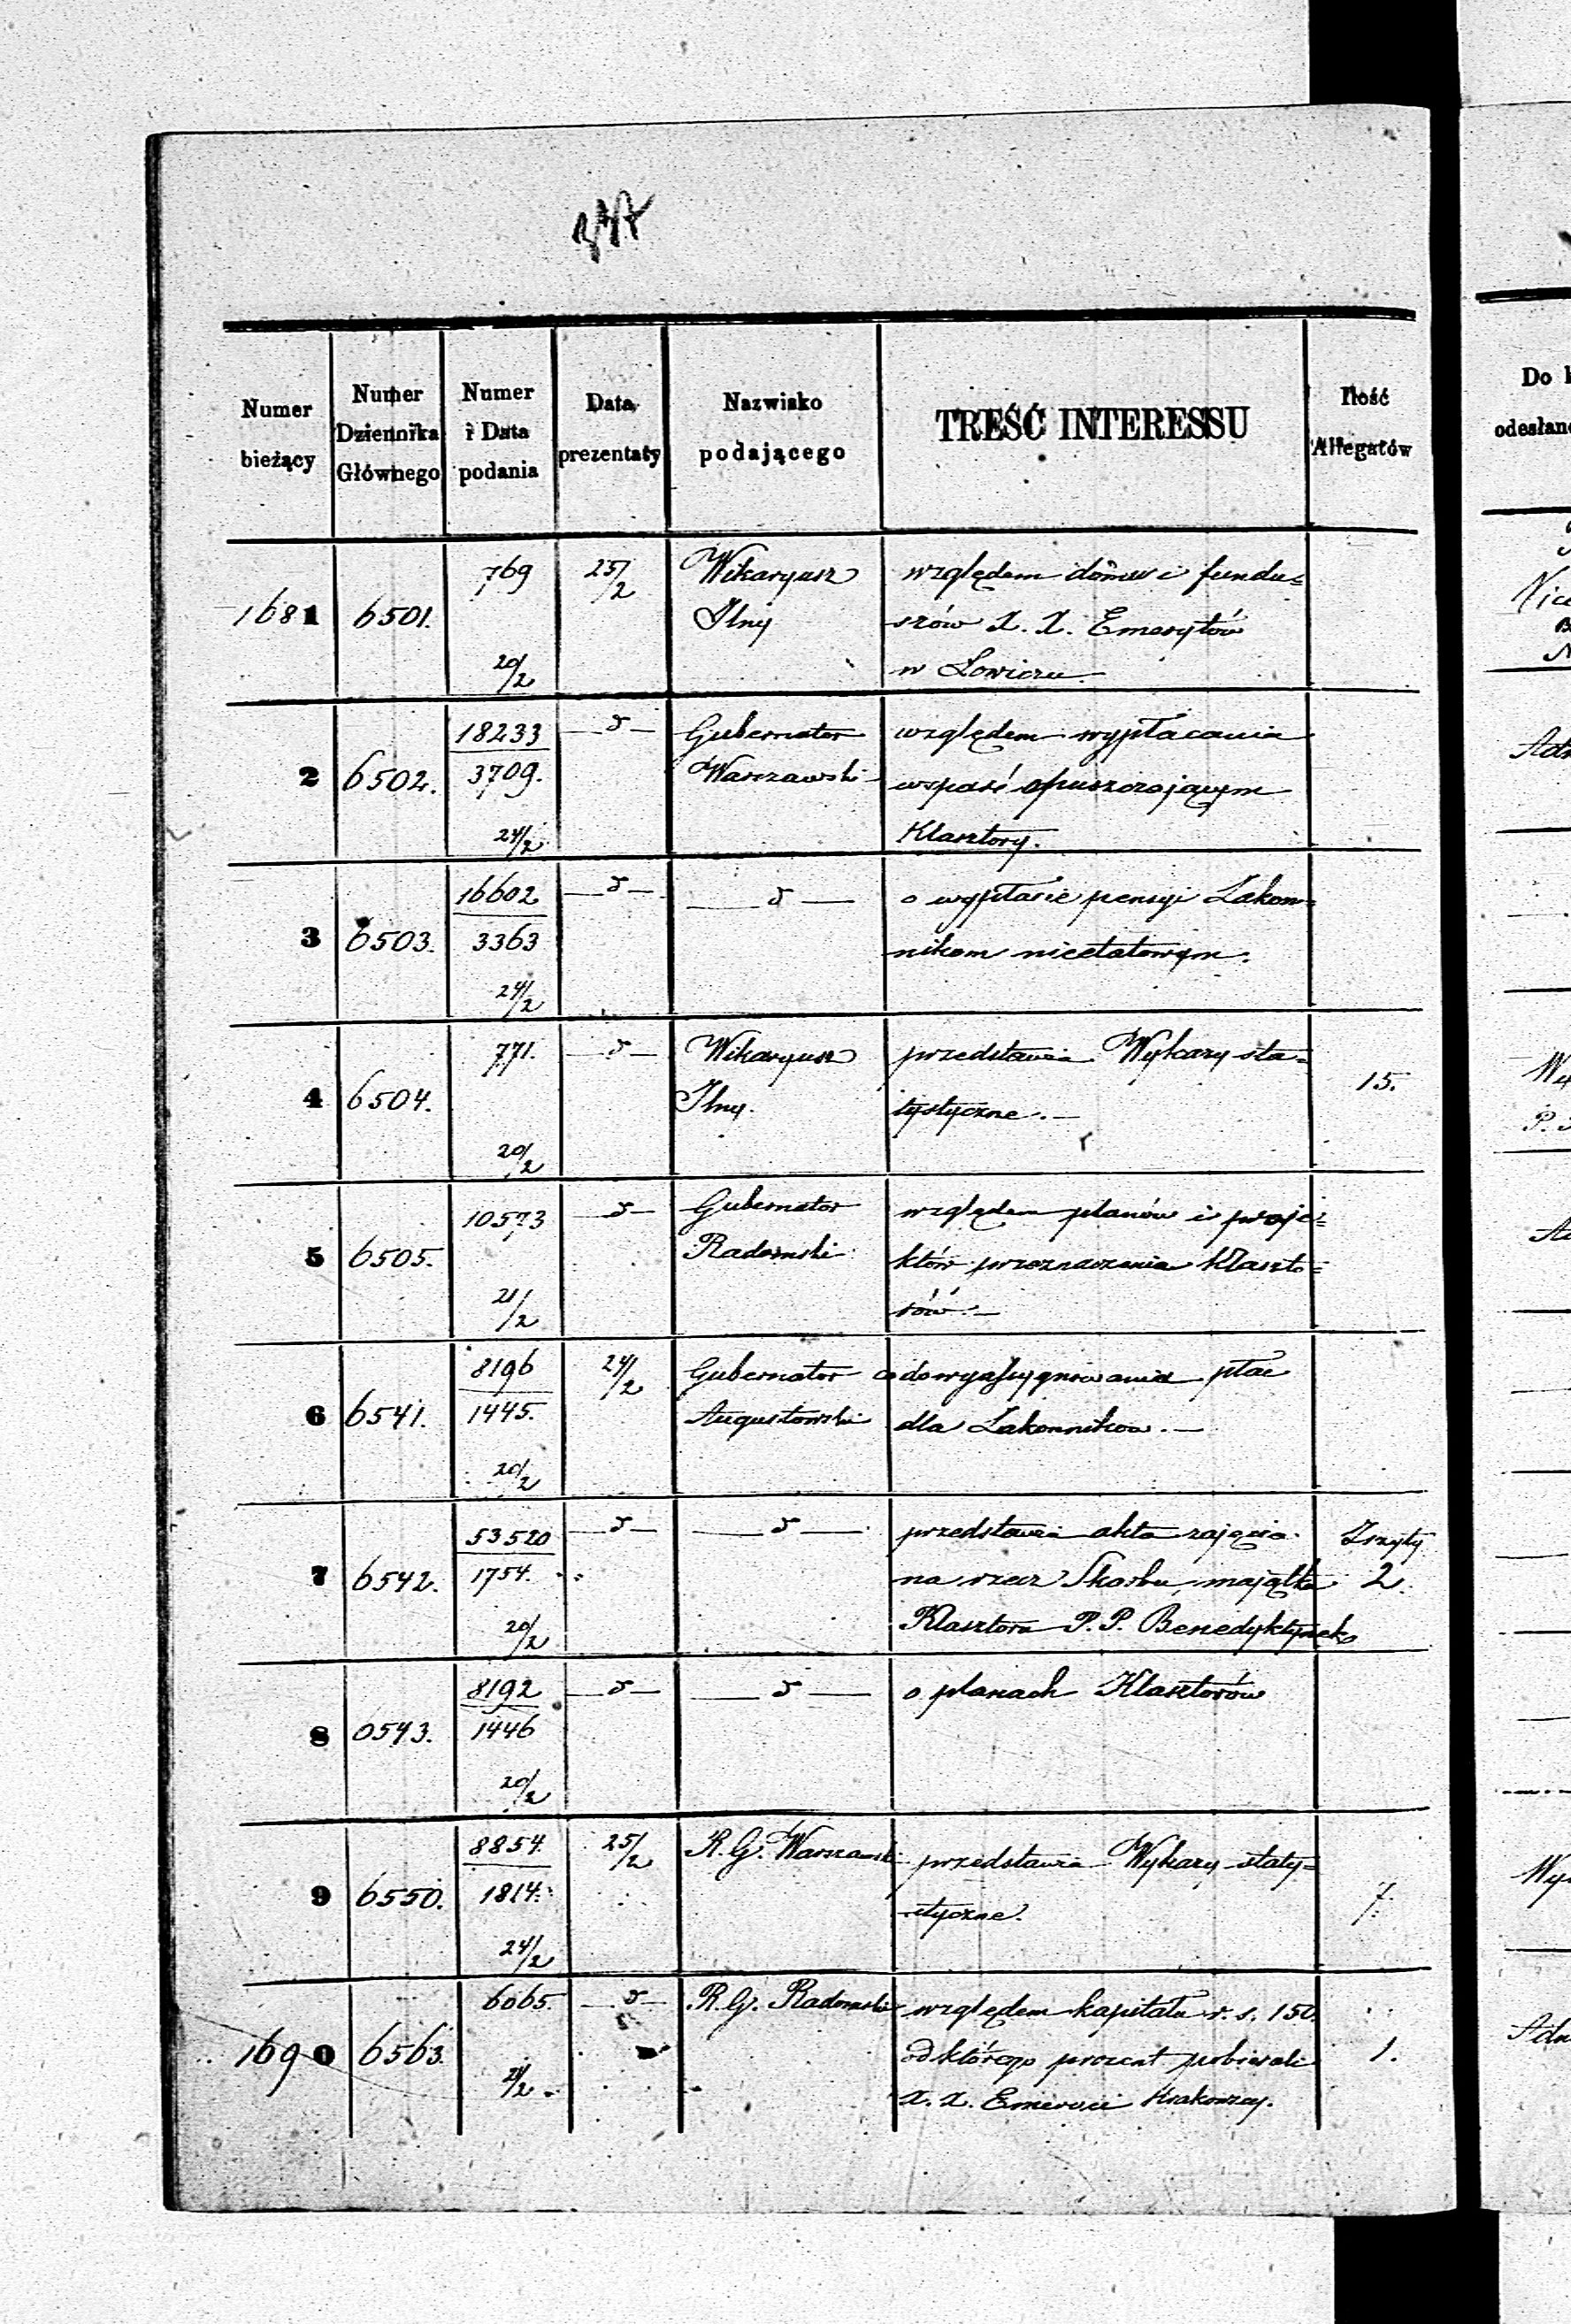 Numer bieżący | Numer Dziennika Głównego | Numer i Data podania | Data prezentaty | Nazwisko podającego | TREŚĆ INTERESSU | Ilość Allegatów
1681 | 6501. | 769 20/2 | 25/2 | Wikaryusz Jlny | względem domu i fundu=
szów X. X. Emerytów
w Łowiczu.
2 | 6502. | 18233 3709. 24/2 | —d— | Gubernator Warszawski | względem wypłacania
wsparć opuszczającym
Klasztory.
3 | 6503. | 16602 3363 24/2 | —d— | —d— | o wypłacie pensyi Zakon=
nikom nieetatowym.
4 | 6504. | 771. 20/2 | —d— | Wikaryusz Jlny. | przedstawia Wykazy sta= | 15.
tystyczne.—
5 | 6505. | 10573 21/2 | —d— | Gubernator Radomski | względem planów i proje=
któw przeznaczenia Klaszto=
rów.—
6 | 6541. | 8196 1445. 20/2 | 24/2 | Gubernator Augustowski | co do wyassygnowania płac
dla Zakonników.—
7 | 6542. | 53520 1754. 20/2 | —d— | —d— | przedstawia akta zajęcia | Zszyty 2.
na rzecz Skarbu majątku
Klasztoru P. P. Benedyktynek
8 | 6543. | 8192 1446 20/2 | —d— | —d— | o planach Klasztorów
9 | 6550. | 8854. 1814. 24/2 | 25/2 | R. G. Warszawski | przedstawia Wykazy staty= | 7.
styczne.
1690 | 6563. | 6065. 21/2 | —d— | R. G. Radomski | względem kapitału r. s. 150. | 1.
od którego procent pobierali
X. X. Emeryci Krakowscy.
Do
odesłan